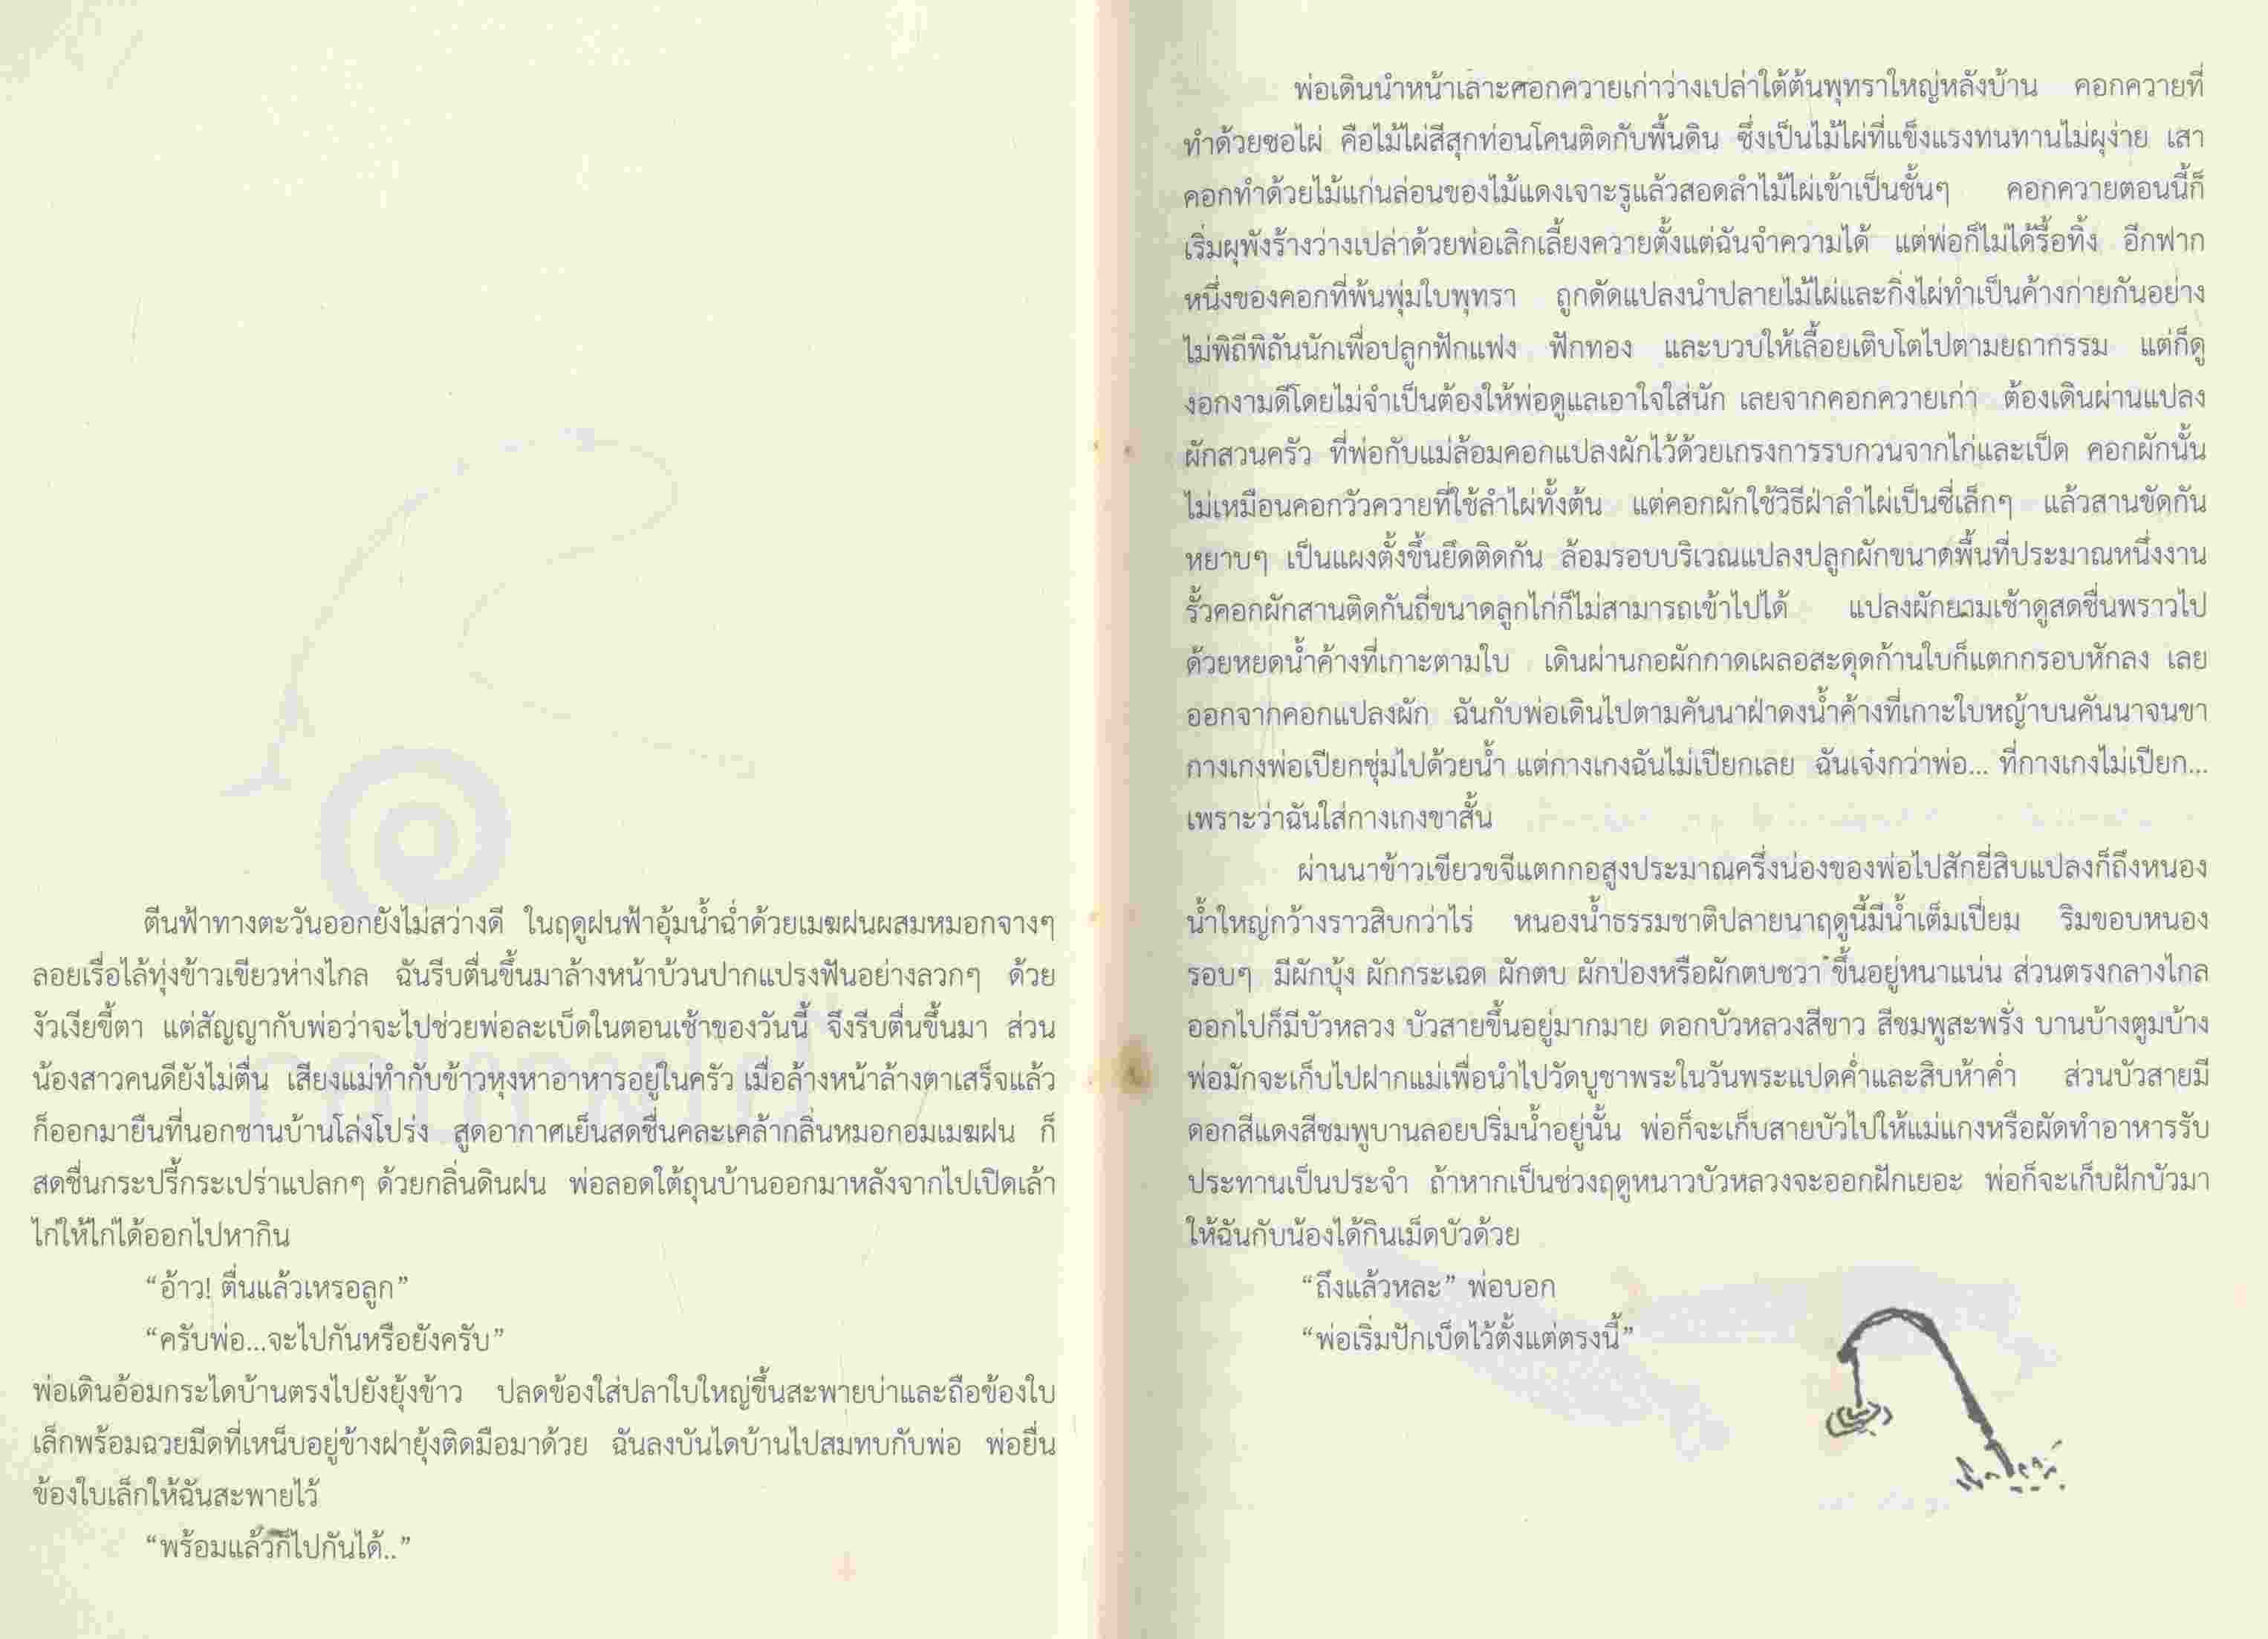 ตีนฟ้าทางตะวันออกยังไม่สว่างดี ในฤดูฝนฟ้าอุ้มน้ำฉ่ำด้วยเมฆฝนผสมหมอกจางๆ
ลอยเรื่อไล้ทุ่งข้าวเขียวห่างไกล ฉันรีบตื่นขึ้นมาล้างหน้าบ้วนปากแปรงฟันอย่างลวกๆ ด้วย
งัวเงียขี้ตา แต่สัญญากับพ่อว่าจะไปช่วยพ่อละเบ็ดในตอนเช้าของวันนี้ จึงรีบตื่นขึ้นมา ส่วน
น้องสาวคนดียังไม่ตื่น เสียงแม่ทำกับข้าวหุงหาอาหารอยู่ในครัว เมื่อล้างหน้าล้างตาเสร็จแล้ว
ก็ออกมายืนที่นอกชานบ้านโล่งโปร่ง สูดอากาศเย็นสดชื่นคละเคล้ากลิ่นหมอกอมเมฆฝน ก็
สดชื่นกระปรี้กระเปร่าแปลกๆ ด้วยกลิ่นดินฝน พ่อลอดใต้ถุนบ้านออกมาหลังจากไปเปิดเล้า
ไก่ให้ไก่ได้ออกไปหากิน
“อ้าว! ตื่นแล้วเหรอลูก”
“ครับพ่อ...จะไปกันหรือยังครับ”
พ่อเดินอ้อมกระไดบ้านตรงไปยังยุ้งข้าว ปลดข้องใส่ปลาใบใหญ่ขึ้นสะพายบ่าและถือข้องใบ
เล็กพร้อมฉวยมีดที่เหน็บอยู่ข้างฝายุ้งติดมือมาด้วย ฉันลงบันไดบ้านไปสมทบกับพ่อ พ่อยื่น
ข้องใบเล็กให้ฉันสะพายไว้
“พร้อมแล้วก็ไปกันได้..”
พ่อเดินนำหน้าเลาะคอกควายเก่าว่างเปล่าใต้ต้นพุทราใหญ่หลังบ้าน คอกควายที่
ทำด้วยซอไผ่ คือไม้ไผ่สีสุกท่อนโคนติดกับพื้นดิน ซึ่งเป็นไม้ไผ่ที่แข็งแรงทนทานไม่ผุง่าย เสา
คอกทำด้วยไม้แก่นล่อนของไม้แดงเจาะรูแล้วสอดลำไม้ไผ่เข้าเป็นชั้นๆ คอกควายตอนนี้ก็
เริ่มผุพังร้างว่างเปล่าด้วยพ่อเลิกเลี้ยงควายตั้งแต่ฉันจำความได้ แต่พ่อก็ไม่ได้รื้อทิ้ง อีกฟาก
หนึ่งของคอกที่พ้นพุ่มใบพุทรา ถูกดัดแปลงนำปลายไม้ไผ่และกิ่งไผ่ทำเป็นค้างก่ายกันอย่าง
ไม่พิถีพิถันนักเพื่อปลูกฟักแฟง ฟักทอง และบวบให้เลื้อยเติบโตไปตามยถากรรม แต่ก็ดู
งอกงามดีโดยไม่จำเป็นต้องให้พ่อดูแลเอาใจใส่นัก เลยจากคอกควายเก่า ต้องเดินผ่านแปลง
ผักสวนครัว ที่พ่อกับแม่ล้อมคอกแปลงผักไว้ด้วยเกรงการรบกวนจากไก่และเป็ด คอกผักนั้น
ไม่เหมือนคอกวัวควายที่ใช้ลำไผ่ทั้งต้น แต่คอกผักใช้วิธีฝ่าลำไผ่เป็นซี่เล็กๆ แล้วสานขัดกัน
หยาบๆ เป็นแผงตั้งขึ้นยึดติดกัน ล้อมรอบบริเวณแปลงปลูกผักขนาดพื้นที่ประมาณหนึ่งงาน
รั้วคอกผักสานติดกันถี่ขนาดลูกไก่ก็ไม่สามารถเข้าไปได้ แปลงผักยามเช้าดูสดชื่นพราวไป
ด้วยหยดน้ำค้างที่เกาะตามใบ เดินผ่านกอผักกาดเผลอสะดุดก้านใบก็แตกกรอบหักลง เลย
ออกจากคอกแปลงผัก ฉันกับพ่อเดินไปตามคันนาฝ่าดงน้ำค้างที่เกาะใบหญ้าบนคันนาจนขา
กางเกงพ่อเปียกชุ่มไปด้วยน้ำ แต่กางเกงฉันไม่เปียกเลย ฉันเจ๋งกว่าพ่อ... ที่กางเกงไม่เปียก...
เพราะว่าฉันใส่กางเกงขาสั้น
ผ่านนาข้าวเขียวขจีแตกกอสูงประมาณครึ่งน่องของพ่อไปสักยี่สิบแปลงก็ถึงหนอง
น้ำใหญ่กว้างราวสิบกว่าไร่ หนองน้ำธรรมชาติปลายนาฤดูนี้มีน้ำเต็มเปี่ยม ริมขอบหนอง
รอบๆ มีผักบุ้ง ผักกระเฉด ผักตบ ผักป่องหรือผักตบชวา ขึ้นอยู่หนาแน่น ส่วนตรงกลางไกล
ออกไปก็มีบัวหลวง บัวสายขึ้นอยู่มากมาย ดอกบัวหลวงสีขาว สีชมพูสะพรั่ง บานบ้างตูมบ้าง
พ่อมักจะเก็บไปฝากแม่เพื่อนำไปวัดบูชาพระในวันพระแปดค่ำและสิบห้าค่ำ ส่วนบัวสายมี
ดอกสีแดงสีชมพูบานลอยปริ่มน้ำอยู่นั้น พ่อก็จะเก็บสายบัวไปให้แม่แกงหรือผัดทำอาหารรับ
ประทานเป็นประจำ ถ้าหากเป็นช่วงฤดูหนาวบัวหลวงจะออกฝักเยอะ พ่อก็จะเก็บฝักบัวมา
ให้ฉันกับน้องได้กินเม็ดบัวด้วย
“ถึงแล้วหละ” พ่อบอก
“พ่อเริ่มปักเบ็ดไว้ตั้งแต่ตรงนี้”